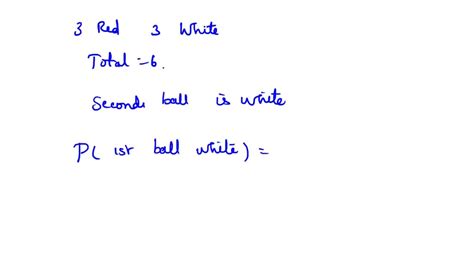 3 Red 3 White
Total = 6.
Second ball is white
P( 1st ball white) =